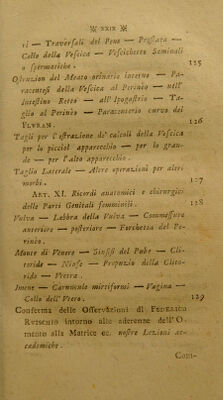 ※ XXIX ※
ri — Traversali del Pene — Prostata —
Collo della Vescica — Vescichette Seminali
o spermatiche. 125
Ostruzion del Meato orinario interno — Pa-
racentesi della Vescica al Perinio — nell'
Intestino Retto — all'Ipogastrio — Ta-
glio al Perinio — Paracenterio curvo dei
FLURAN. 126
Tagli per l'estrazione de' calcoli della Vescica
per lo picciol apparecchio — per lo gran-
de — per l'alto apparecchio.
Taglio Laterale — Altre operazioni per altri
morbi. 127
ART. XI. Ricordi anatomici e chirurgici
delle Parti Genitali femminili. 128
Vulva — Labbra della Vulva — Commessure
anteriore — posteriore — Forchetta del Pe-
rinio.
Monte di Venere — Sinfisi del Pube — Cli-
toride — Ninfe — Prepuzio della Clito-
ride — Uretra.
Imene — Caruncule mirtiformi — Vagina —
Collo dell'Utero. 129
Conferma delle Osservazioni di FEDERICO
RUISCHIO intorno alle aderenze dell'O-
mento alla Matrice ec. nostre Lezioni ac-
cademiche.
Com-